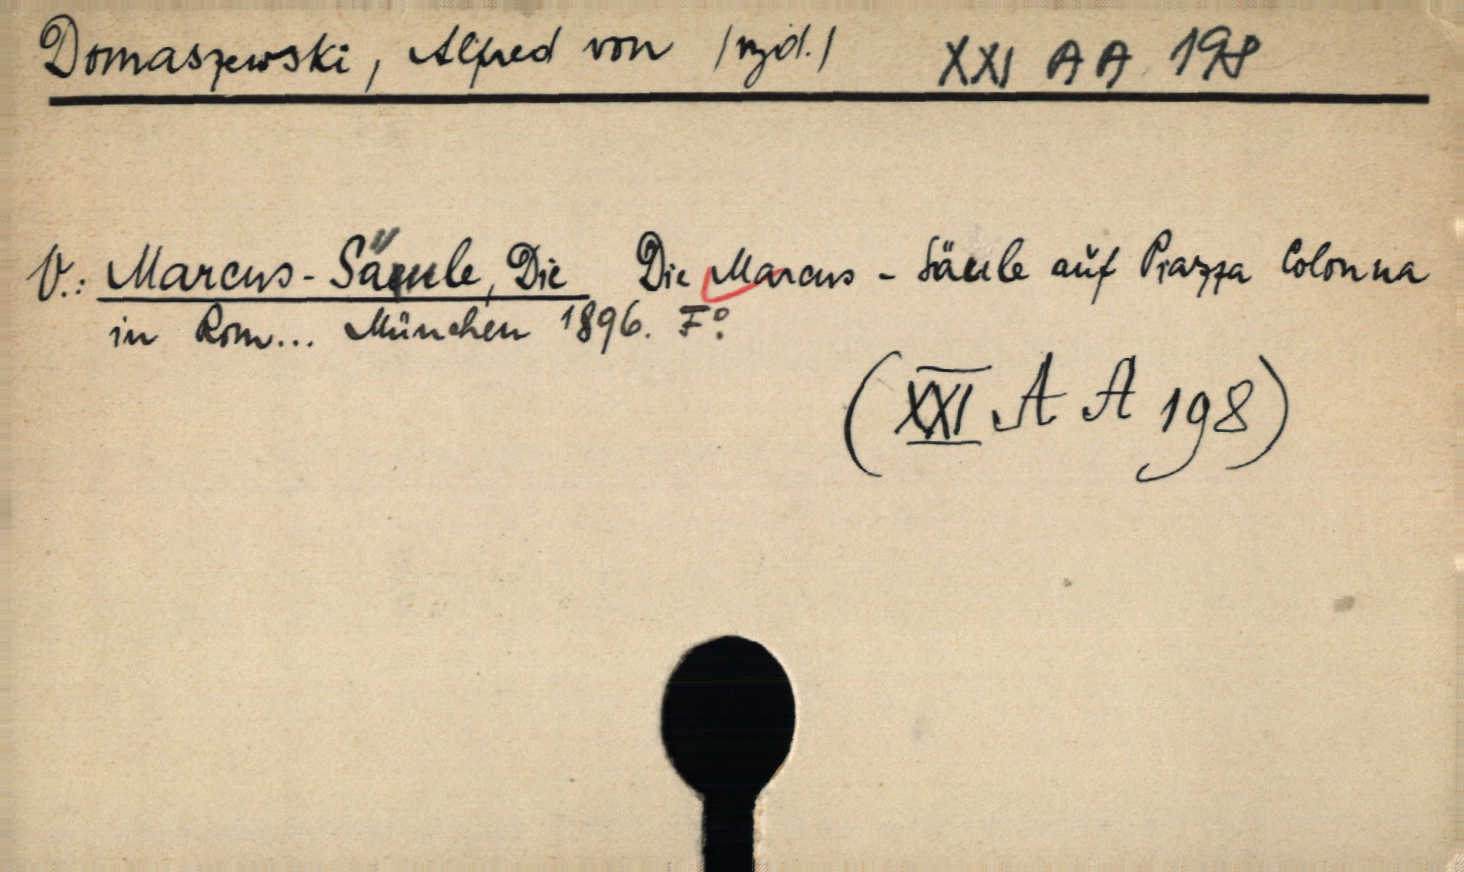 Domaszewski, Alfred von /wyd./ XXI AA 198
V.: Marcus-Säule, Die Die Marcus-Säule auf Piazza Colonna
in Rom... München 1896. F°.
(XXI A A 198)